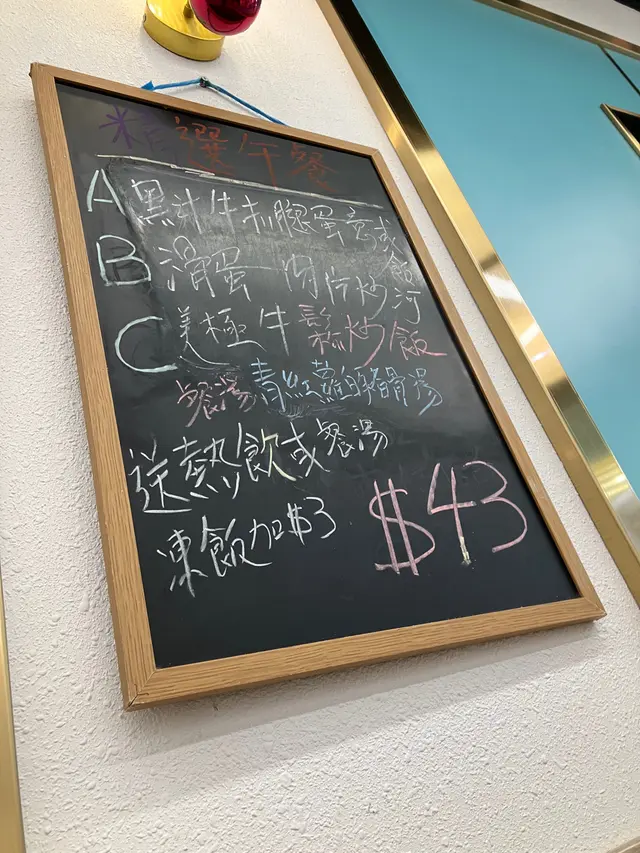 精選午餐
A 黑汁牛扒腿蛋意或飯
B 滑蛋肉片炒河
C 美極牛鬆炒飯
餐湯 青紅蘿蔔豬骨湯
送熱飲或餐湯
凍飯加$3
$43